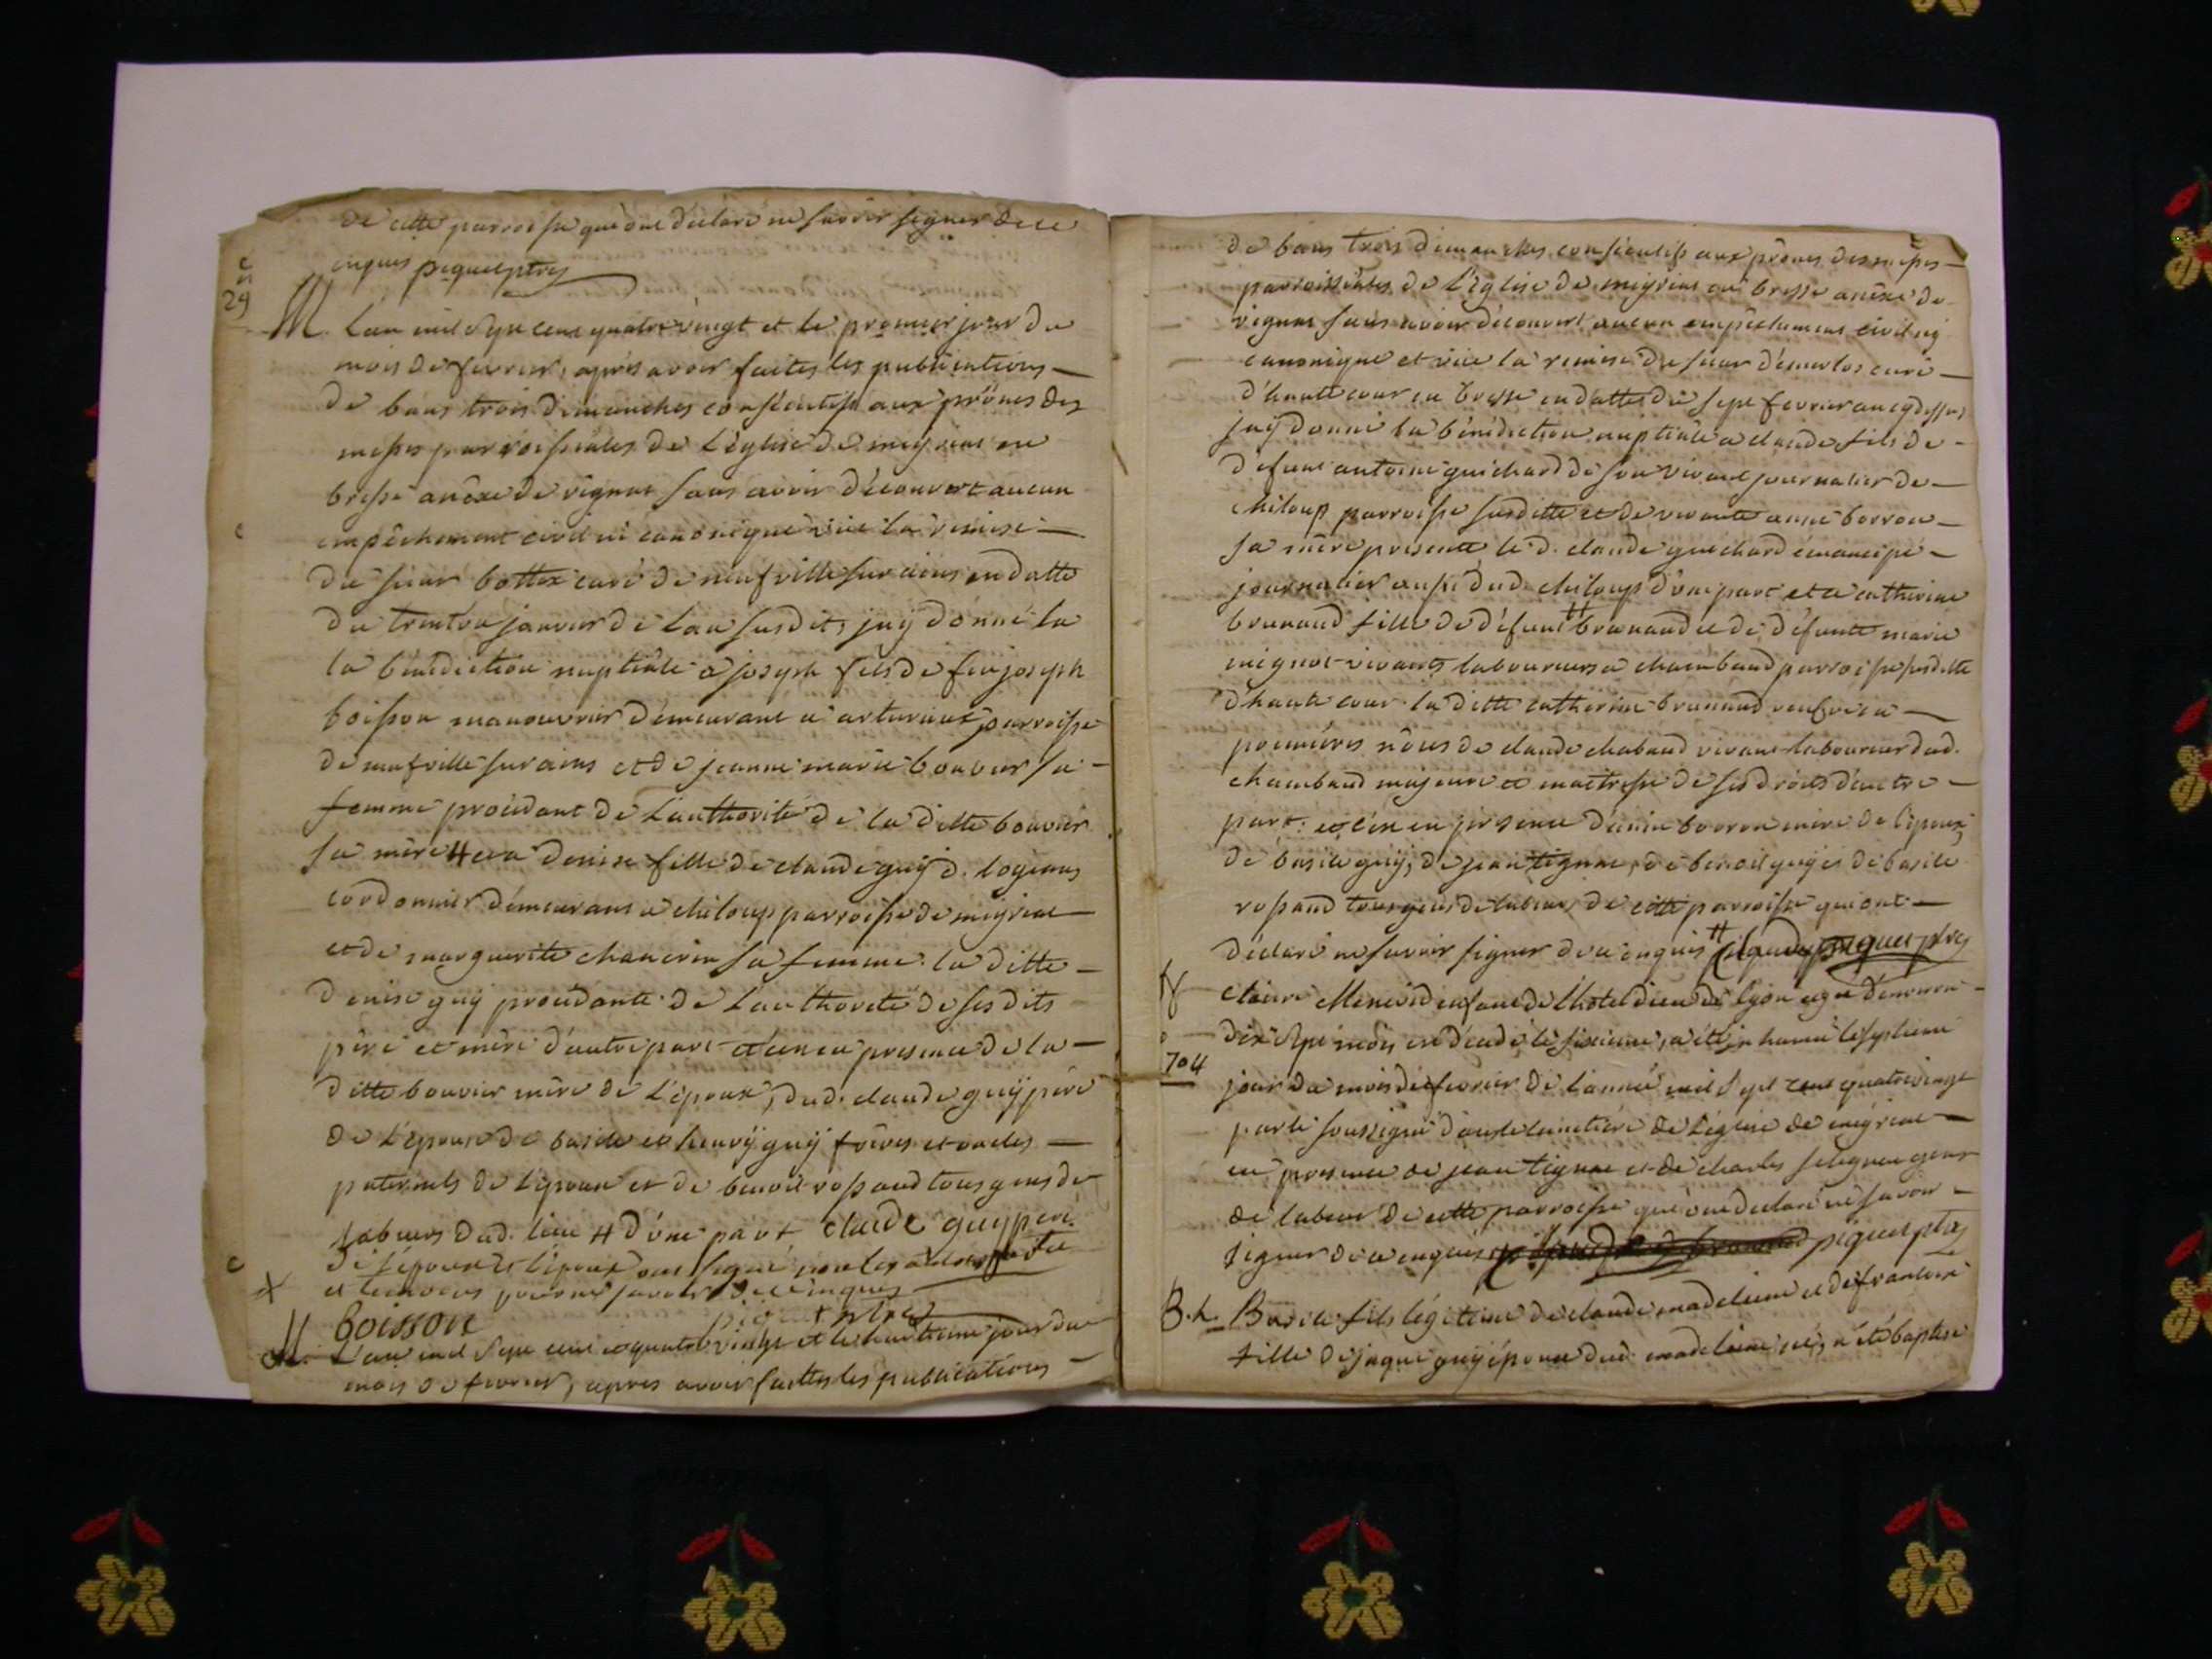 de cette parroisse qui ont déclaré ne savoir signer de ce
enquis piquet ptre
29
M. L'an mil sept cent quatre vingt et le premier jour du
mois de fevrier, après avoir faites les publications
de bans trois dimanches consécutifs aux prônes des
messes parroissiales de l'église de meyriat en
bresse anêxe de vignat sans avoir découvert aucun
empêchement civil ni canonique vüe la remise
du sieur bottex curé de neufville sur ains en datte
du trente un janvier de l'an susdit, j'aÿ donné la
la bénédiction nuptiale a joseph fils de feu joseph
boisson manouvrier demeurant a parroisse
de neufville sur ains et de jeanne marie bouvier sa
femme procédant de l'authorité de la ditte bouvier
sa mère # et a denise fille de claude guÿ d. logeans
cordonnier demeurans a chiloup parroisse de meyriat
et de marguerite chanerin sa femme. la ditte
denise guÿ procédante de l'authorité de ses dits
père et mère d'autre part et ce en presence de la
ditte bouvier mère de l'époux, dud. claude guÿ père
de l'épouse de basile et henrÿ guÿ frères et oncles
paternels de l'épouse et de benoit rossand tous gens de
labeurs dud. lieu # d'une part claude guy pere
de l'épouse et l'époux ont signé non les autres partie
et temoins pour ne savoir de ce enquis
Boisson piquet ptre
M. L'an mil sept cent quatre vingt et le huitieme jour du
mois de fevrier, apres avoir faittes les publications
de bans trois dimanches consécutifs aux prônes des messes
parroissiales de l'église de meyriat en bresse anêxe de
vignat sans avoir découvert aucun empêchement civil nÿ
canonique et vüe la remise du sieur curé
d'haute cour en bresse en datte du sept fevrier an cy dessus
j'aÿ donné la bénédiction nuptiale a claude fils de
défunt antoine guichard de son vivant journalier de
chiloup parroisse susditte et de vivante anne borron
sa mère presente le d. claude guichard émancipé
journalier aussi dud. chiloup d'une part et a catherine
brunaud fille de défunt # brunaud et de défunte marie
mignot vivants laboureurs a chambaud parroisse susditte
d'haute cour. la ditte catherine brunaud veufve en
premières nôces de claude chabaud vivant laboureur dud.
chambaud majeure et maitresse de ses droits d'autre
part. et ce en presence d'anne borron mère de l'époux
de basile guÿ, de jean tignat, de benoit guÿ et de basile
rossand tous gens de labeur, de cette parroisse qui ont
déclaré ne savoir signer de ce enquis # piquet ptre
claire enfant de l'hotel dieu de lyon agé d'environ
dix sept mois est décédé le sixieme, a été in humé le septieme
704
jour du mois de fevrier de l'année mil sept cent quatrevingt
par le soussigné dans le cimetière de l'église de meyriat
en presence de jean tignat et de charles gens
de labeur de cette parroisse qui ont déclaré ne savoir
signer de ce enquis piquet ptre
B. Basile fils légitime de claude madeleine et de françoise
fille de jaque guÿ épouse dud. madeleine né, a été baptisé